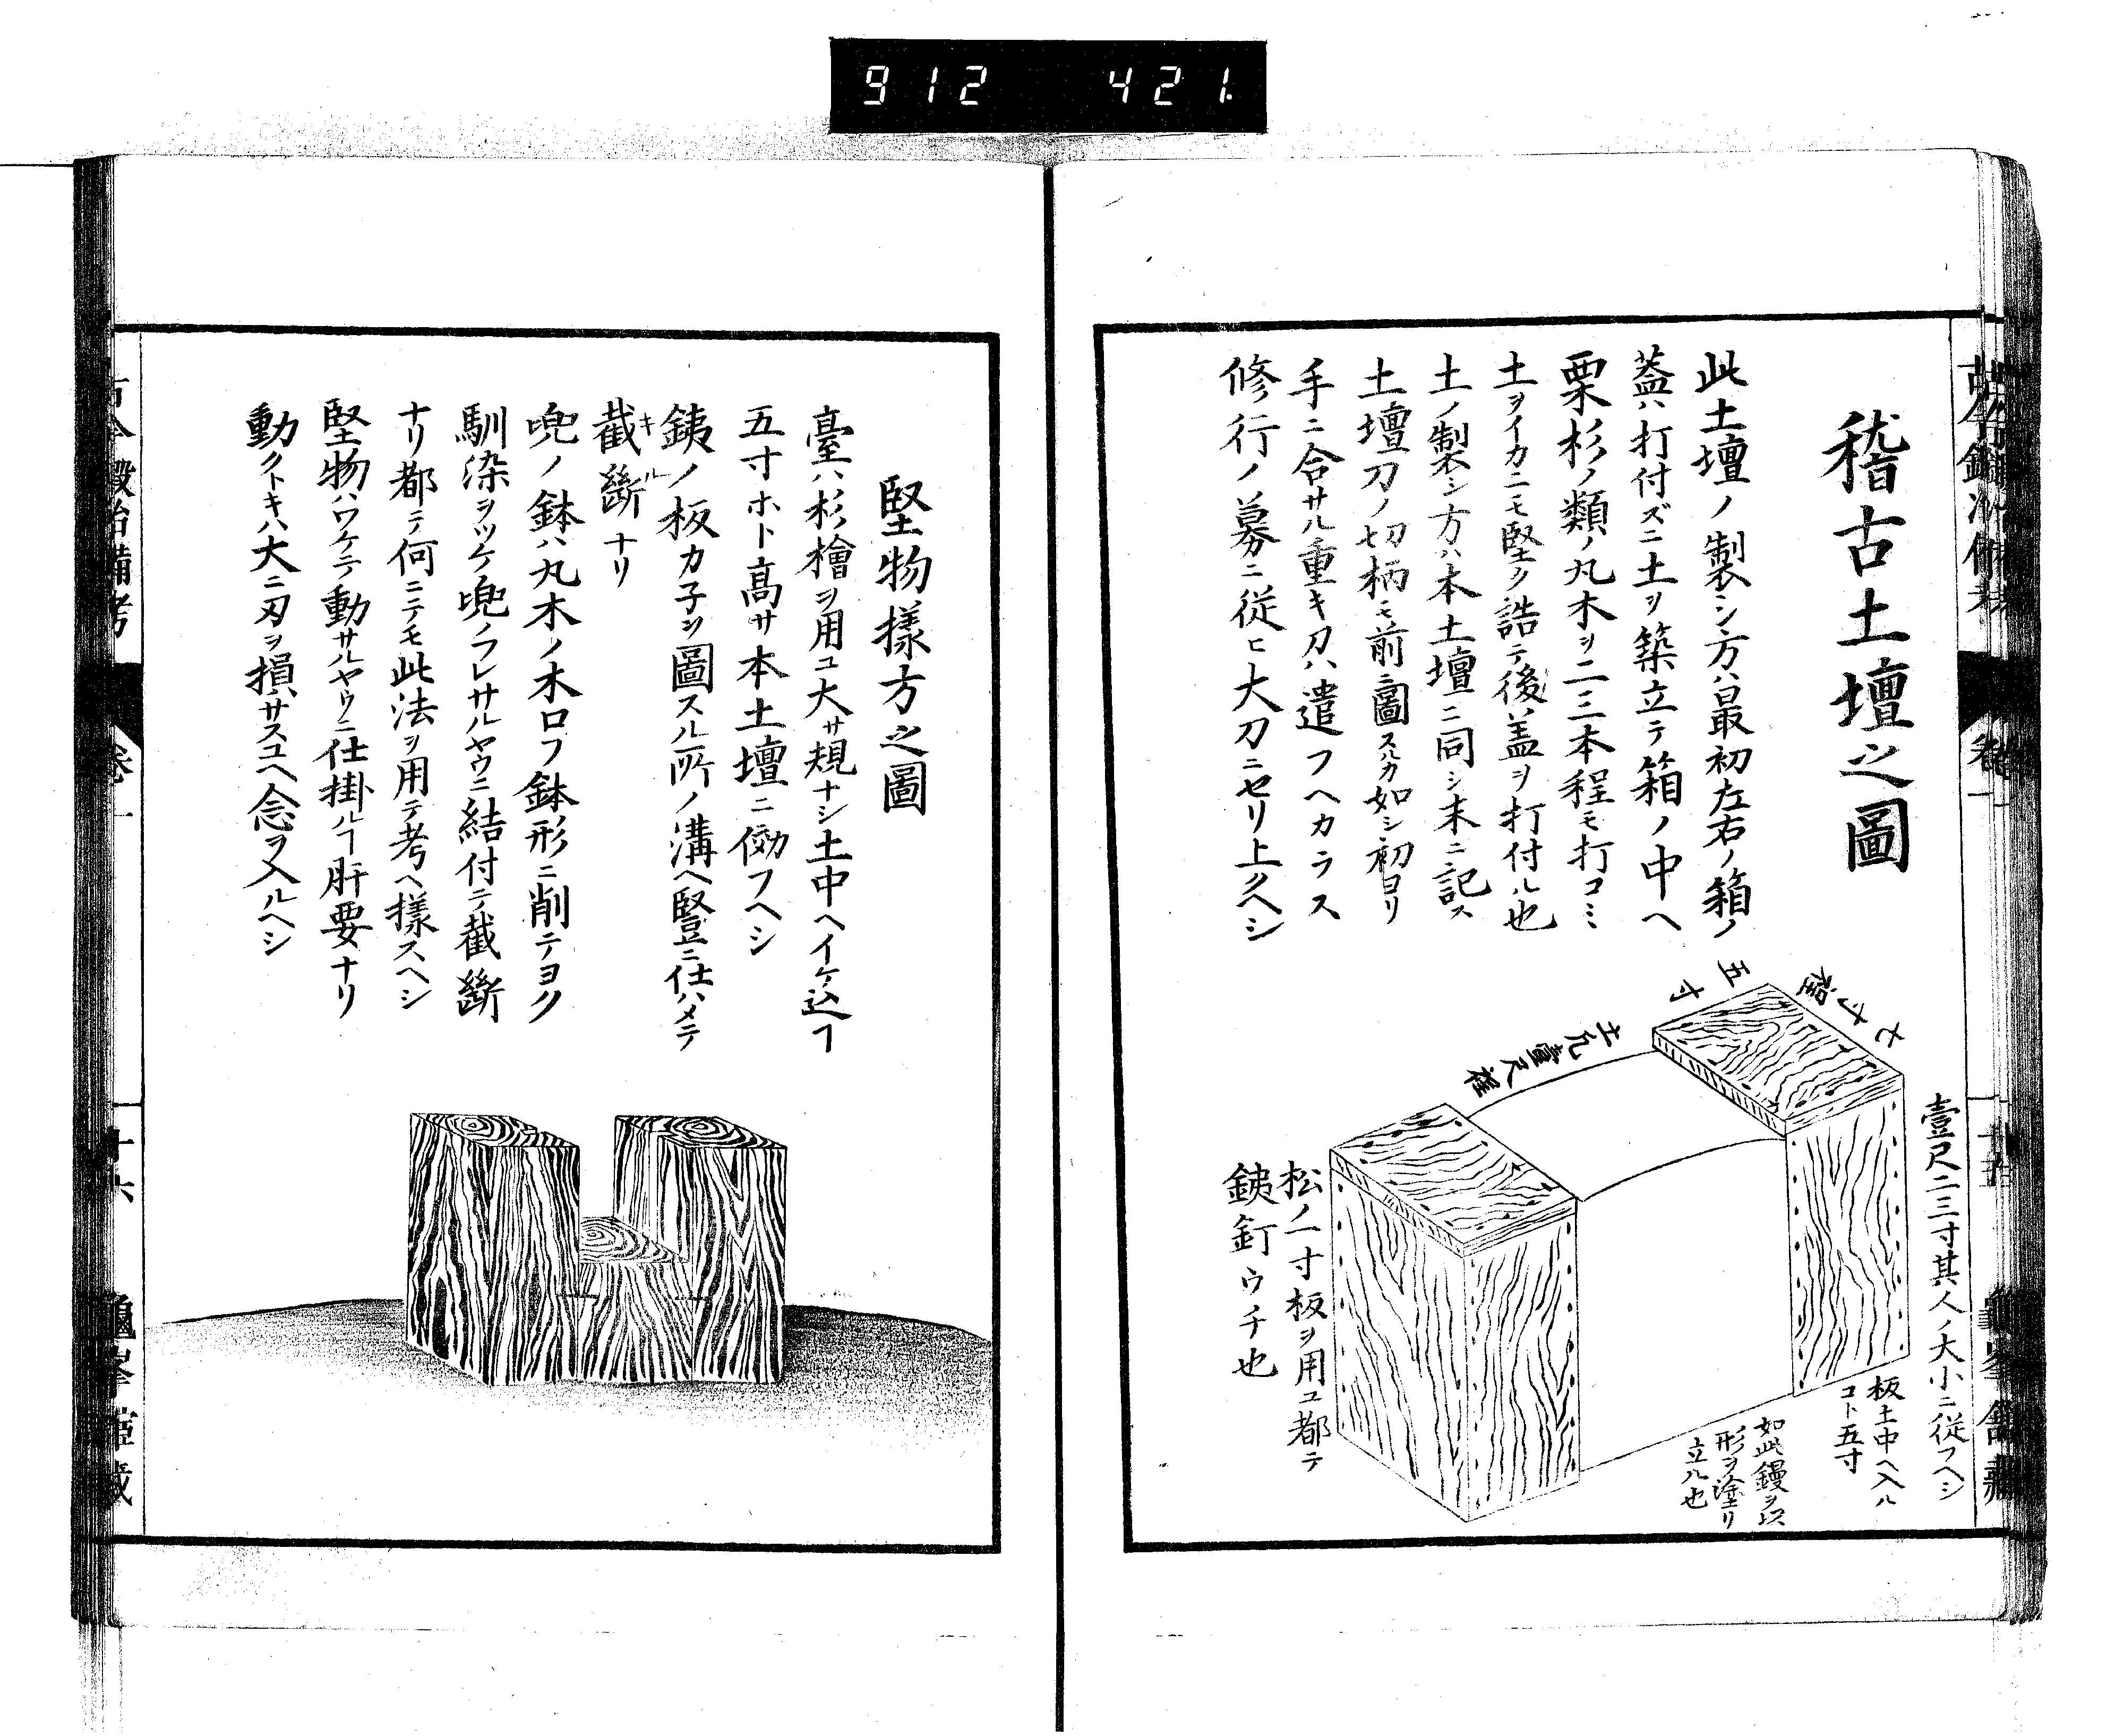 912 421
稽古土壇之圖
此土壇ノ製シ方ハ最初左右ノ箱ノ
蓋ハ打付ズニ土ヲ築立テ箱ノ中ヘ
栗杉ノ類ノ丸木ヲ二三本程モ打コミ
土ヲイカニモ堅ク詰テ後蓋ヲ打付ル也
土ノ製シ方ハ本土壇ニ同シ末ニ記ス
土壇刀ノ切柄モ前ニ圖スルカ如シ初ヨリ
手ニ合サル重キ刀ハ遣フヘカラス
修行ノ募ニ従ヒ大刀ニセリ上クヘシ
七寸程
五寸
土凡壹尺程
壹尺二三寸其人ノ大小ニ従フヘシ
板土中ヘ入ル
コト五寸
如此鏝ヲ以
形ヲ塗リ
立ル也
松ノ一寸板ヲ用ユ都テ
銕釘ウチ也
堅物様方之圖
臺ハ杉檜ヲ用ユ大サ規ナシ土中ヘイケ込ヿ
五寸ホト高サ本土壇ニ効フヘシ
銕ノ板カ子ハ圖スル所ノ溝ヘ竪ニ仕ハメテ
截斷キルナリ
兜ノ鉢ハ丸木ノ木口フ鉢形ニ削テヨク
馴染ヲツケ兜ノフレサルヤウニ結付テ截斷
ナリ都テ何ニテモ此法ヲ用テ考ヘ様スヘシ
堅物ハワケテ動サルヤウニ仕掛ルヿ肝要ナリ
動クトキハ大ニ刃ヲ損サスユヘ念ヲ入ルヘシ
古今鍛冶備考
卷一
十六